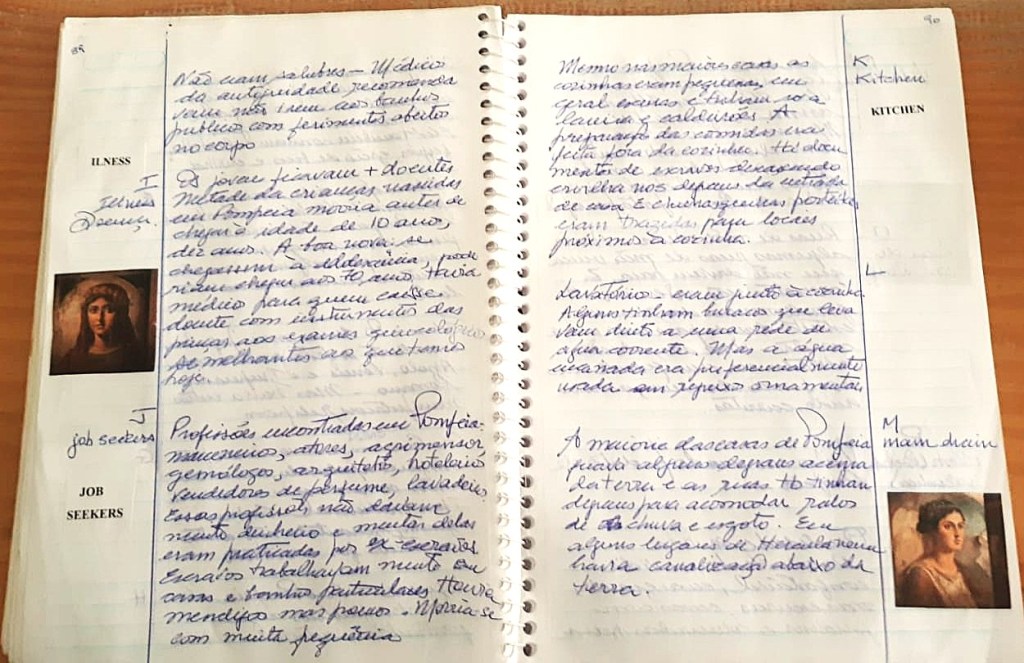 89
Não eram salubres - Médico
da antiguidade recomenda
vam não irem aos banhos
publicos com ferimentos abertos
no corpo
ILNESS
I
Ilness
Doença.
Os jovens ficavam + doentes
Metade da crianças nascidas
em Pompeia morria antes de
chegar a idade de 10 anos,
dez anos. A boa nova: se
chegassem à adolescência, pode
riam chegar aos 70 anos. Havia
médico para quem caisse
doente com instrumentos das
pinças aos exames ginecológicos
semelhantes ao que temos
hoje.
J
job seekers
JOB
SEEKERS
Profissões encontradas em Pompeia:
marceneiro, atores, agrimensor,
gemólogos, arquiteto, hoteleiro
vendedores de perfume, lavadeiras
Essas profissões não davam
muito dinheiro e muitas delas
eram praticadas por ex-escravos
Escravos trabalhavam muito em
casas e banhos particulares Havia
mendigo mas poucos. Morria-se
com muita frequência
90
K.
Kitchen
KITCHEN
Mesmo nas maiores casas as
cozinhas eram pequenas, em
geral escuras e tinham só a
lareira e caldeirões. A
preparação das comidas era
feita fora da cozinha. Há docu
mentos de escravos descascando
ervilha nos degraus da entrada
de casa E churrasqueiras portáteis
eram trazidas para locais
próximos à cozinha.
L
Lavatório - eram junto à cozinha
Alguns tinham buraco que leva
vam direto a uma rede de
agua corrente. Mas a água
encanada era preferencialmente
usada em repuxo ornamentais
M
main drain
A maioria das casas de Pompeia
ficava alguns degraus acima
da terra e as ruas tinham
degraus para acomodar ralos
de chuva e esgoto. Em
alguns lugares de Herculaneum
havia canalização abaixo da
terra.